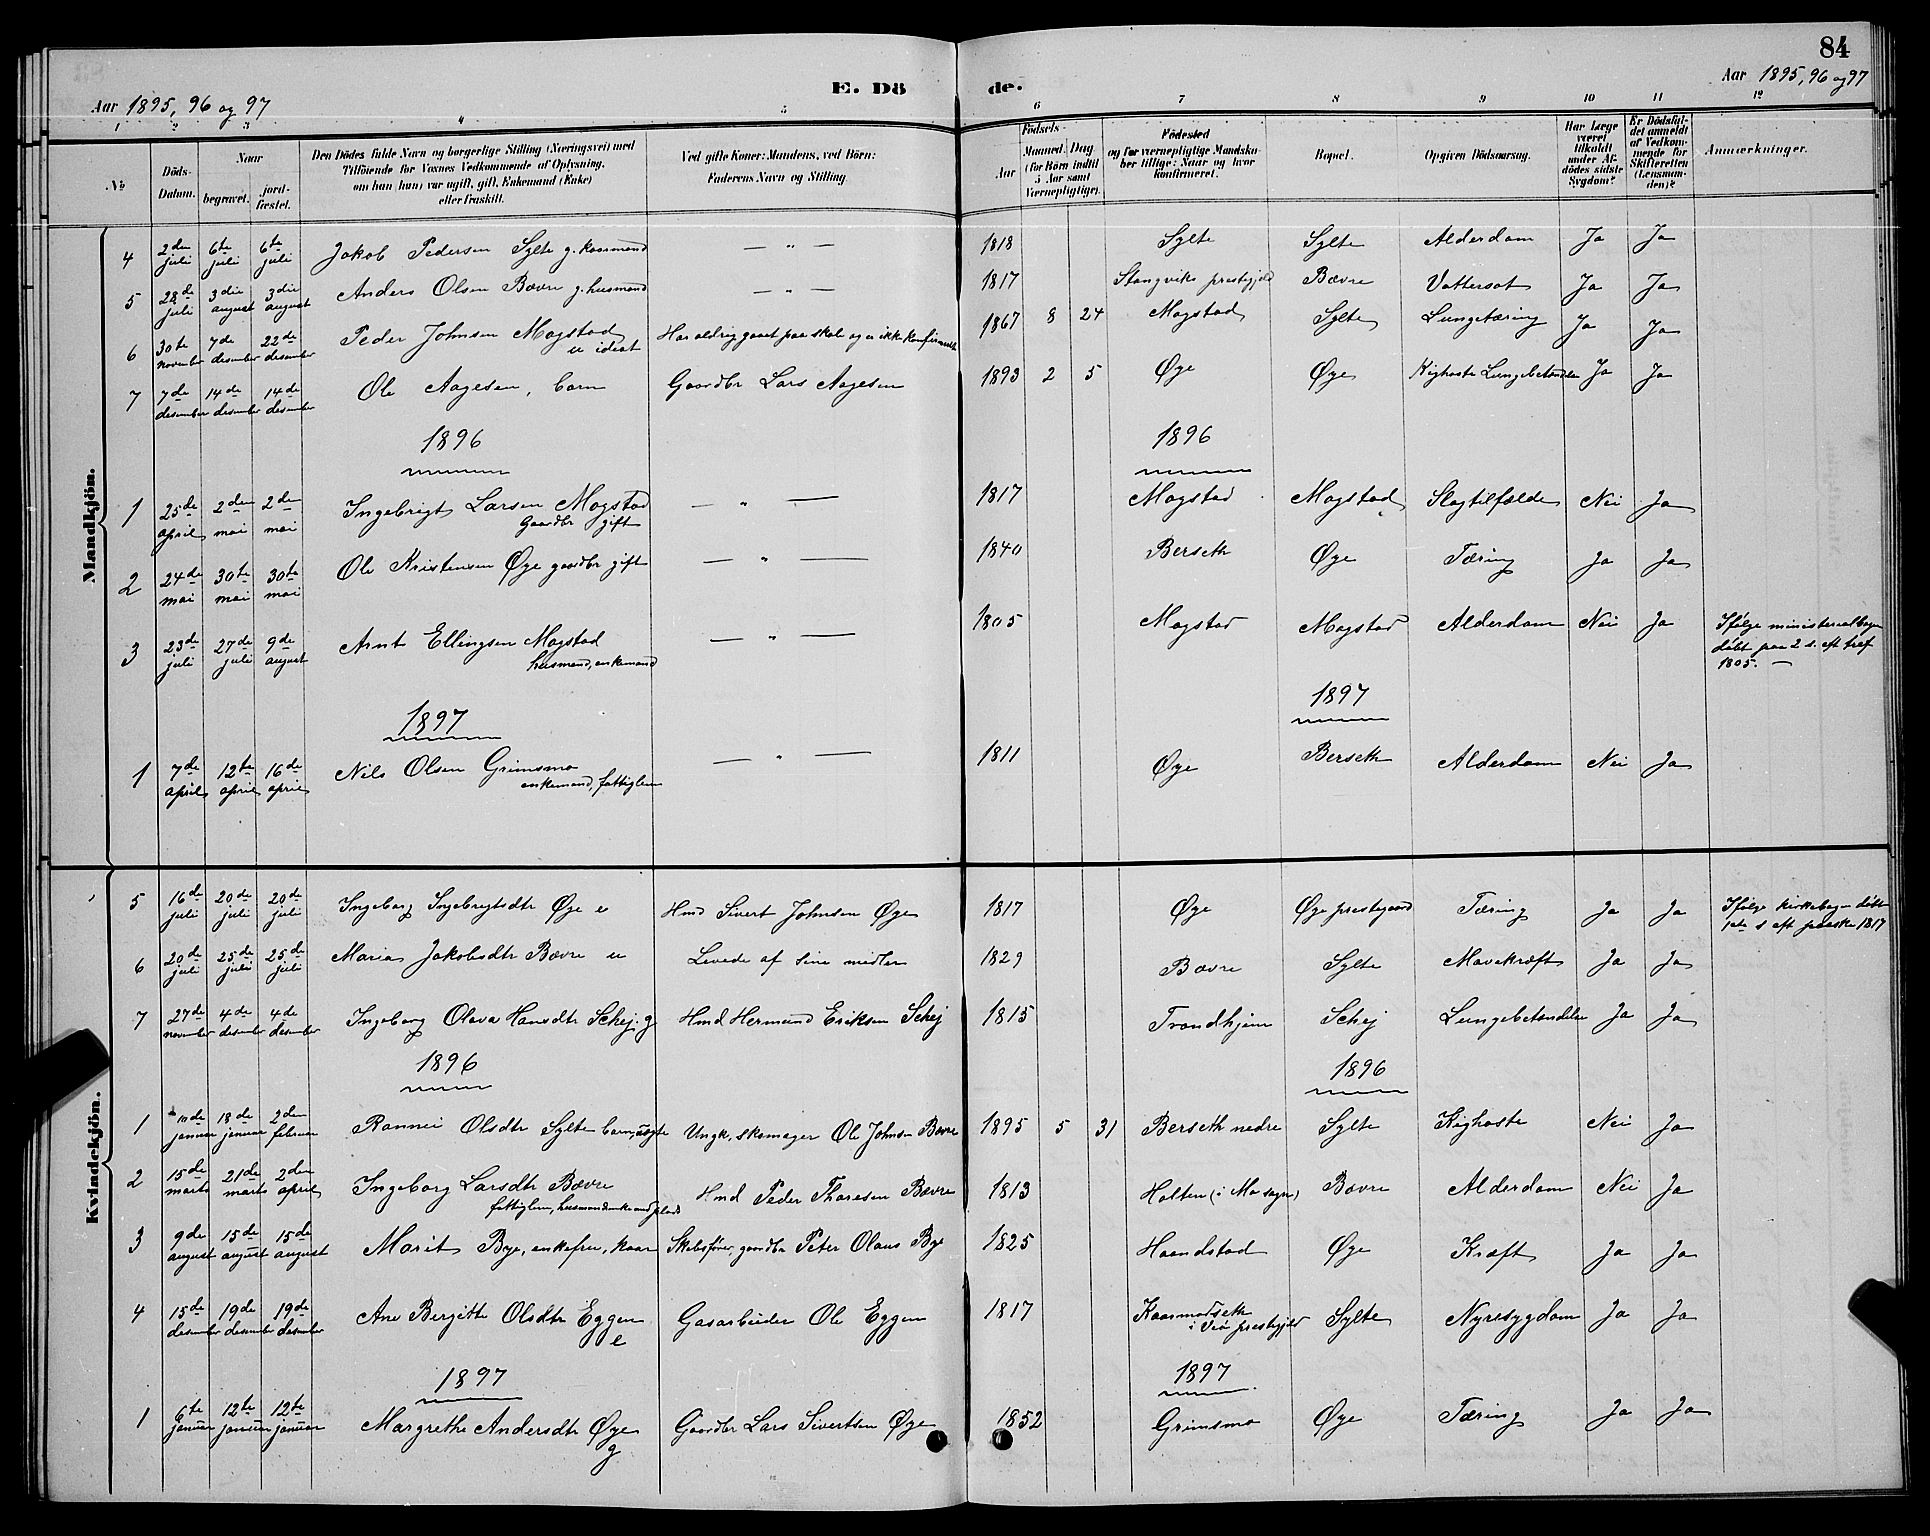 84
Aar 1895, 96 og 97 E. Dö de. Aar 1895, 96 og 97
1 2 3 4 5 6 7 8 9 10 11 12
No Döds-Datum. Naar begravet. jord-fæstet. Den Dödes fulde Navn og borgerlige Stilling (Næringsvei) med Tilföiende for Voxnes Vedkommende af Oplysning, om han (hun) var ugift, gift, Enkemand (Enke) eller fraskilt. Ved gifte Koner: Mandens, ved Börn: Faderens Navn og Stilling. Födsels- Aar Maaned. Dag (for Börn indtil 5 Aar samt Værnepligtige). Födested og for værnepligtige Mandskaber tillige: Naar og hvor konfirmeret. Bopæl. Opgiven Dödsaarsag. Har Læge været tilkaldt under Afdödes sidste Sygdom? Er Dödsfaldet anmeldt af Vedkommende for Skifteretten (Lensmanden)? Anmærkninger.
Mandkjön.
4 2den juli 6te juli 6te juli Jakob Pedersen Sylte g. kaarmand — " — 1818 Sylte Sylte Alderdom Ja Ja
5 28de juli 3die august 3die august Anders Olsen Bævre g. husmand — " — 1817 Stangviks prestegjeld Bævre Vattersot Ja Ja
6 30te november 7de desember 22de desember Peder Johnsen Mogstad u idiot Har aldrig gaaet paa skole og er ikke konfirmeret 1867 8 24 Mogstad Sylte Lungetæring Ja Ja
7 7de desember 14de desember 14de desember Ole Aagesen, barn Gaardbr Lars Aagesen 1893 2 5 Øye Øye Kighoste Lungebetændelse Ja Ja
1896 1896
1 25de april 2den mai 2den mai Ingebrigt Larsen Mogstad Gaardbr gift — " — 1817 Mogstad Mogstad Slagtilfælde Nei Ja
2 24de mai 30te mai 30te mai Ole Kristensen Øye gaardbr gift — " — 1840 Berseth Øye Tæring Ja Ja
3 23de juli 27de juli 9de august Arnt Ellingsen Mogstad husmand, enkemand — " — 1805 Mogstad Mogstad Alderdom Nei Ja Ifølge ministerialbogen døbt paa 2 s. eft tref 1805. —
1897 1897
1 7de april 12te april 16de april Nils Olsen Grimsmo enkemand, fattiglem — " — 1811 Øye Berseth Alderdom Nei Ja
Kvindekjön.
5 16de juli 20de juli 20de juli Ingeborg Ingebrigtsdtr Øye e Hmd Sivert Johnsen Øye 1817 Øye Øye prestegaard Tæring Ja Ja Ifølge kirkebogen døbt 1ste s eft paaske 1817
6 20de juli 25de juli 25de juli Maria Jakobsdtr Bævre u Levede af sine midler 1829 Bævre Sylte Mavekræft Ja Ja
7 27de november 4de desember 4de desember Ingeborg Olava Hansdtr Schej g Hmd Hermund Eriksen Schej 1815 Trondhjem Schej Lungebetændelse Ja Ja
1896 1896
1 11de januar 18de januar 2den februar Rannei Olsdtr Sylte barn, uægte Ungk, skomager Ole Johnsen Bævre 1895 5 31 Berseth nedre Sylte Kighoste Nei Ja
2 15de marts 21de marts 2den april Ingeborg Larsdtr Bævre fattiglem, husmandsenke Hmd Peder Thoresen Bævre 1813 Holten (i Mo sogn) Bævre Alderdom Nei Ja
3 9de august 15de august 15de august Marit Bye, enkefru, kaar Skibsfører, gaardbr Peter Olaus Bye 1825 Haandstad Øye Kræft Ja Ja
4 15de desember 19de desember 19de desember Ane Bergitte Olsdtr Eggen e Gasarbeider Ole Eggen 1817 i Veø prestegjeld Sylte Nyresygdom Ja Ja
1897 1897
1 6te januar 12te januar 12te januar Margrethe Andersdtr Øye g Gaardbr Lars Sivertsen Øye 1852 Grimsmo Øye Tæring Ja Ja